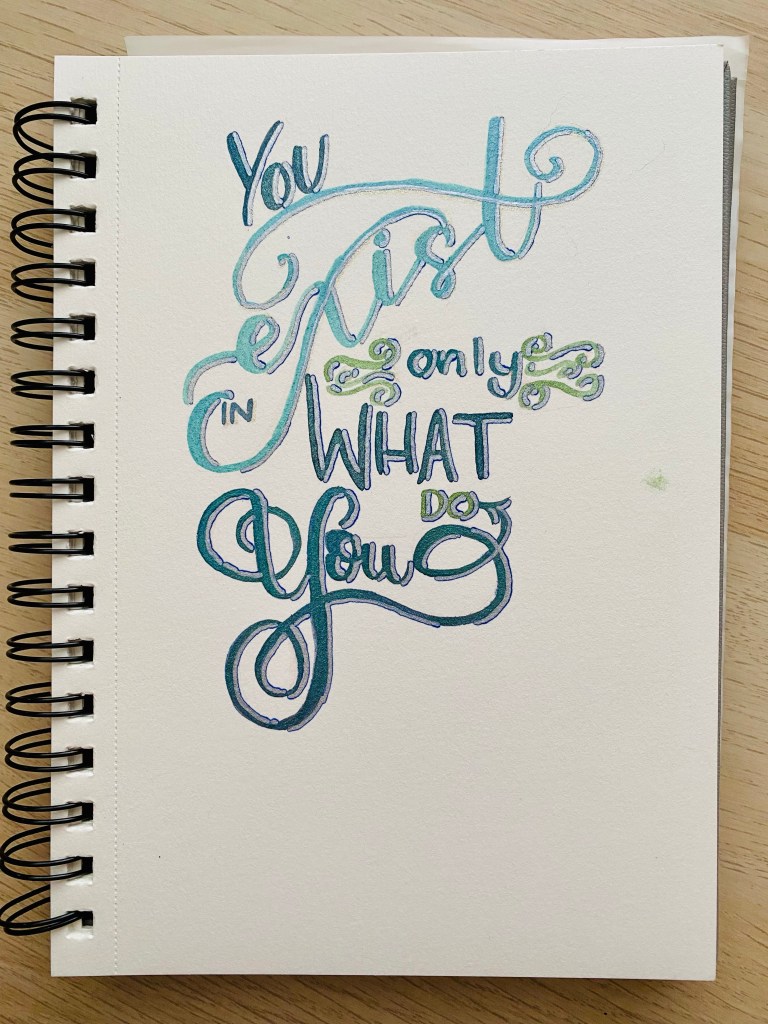 You
exist
only
IN
WHAT
DO
You